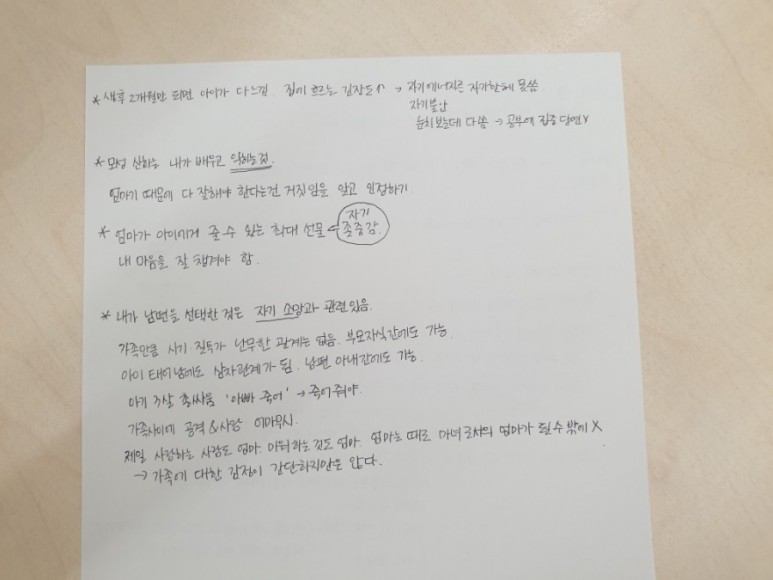 * 생후 2개월만 되면 아이가 다 느낌. 집에 흐르는 긴장도↑ → 자기에너지를 자기한테 못씀
자기불안
눈치보는데 다 씀 → 공부에 집중 당연X
* 모성 신화는 내가 배우고 익히는것.
엄마기 때문에 다 잘해야 한다는건 거짓임을 알고 인정하기.
* 엄마가 아이에게 줄 수 있는 최대 선물 자기
존중감.
내 마음을 잘 챙겨야 함.
* 내가 남편을 선택한 것은 자기 소망과 관련있음.
가족만큼 시기 질투가 난무한 관계는 없음. 부모자식간에도 가능
아이 태어남에도 삼자관계가 됨. 남편 아내간에도 가능.
아기 3살 총싸움 '아빠 죽어' → 죽어줘야.
가족사이에 공격&사랑 어마무시.
제일 사랑하는 사람도 엄마. 미워하는 것도 엄마. 엄마는 때로 마녀로서의 엄마가 될 수 밖에 X
→ 가족에 대한 감정이 간단하지만은 않다.